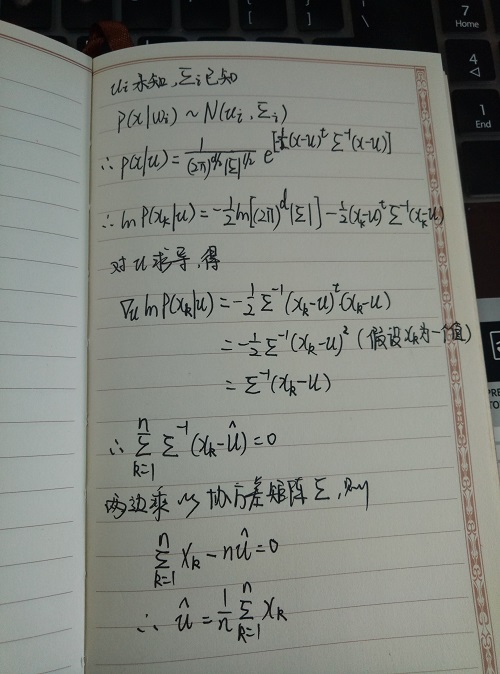 7
Home
4
1
End
μi未知,Σi已知
p(x|wi) ~ N(ui, Σi)
∴ p(x|u) = 1/((2π)^(d/2)|Σ|^(1/2)) e^[½(x-u)^t Σ^-1(x-u)]
∴ ln P(xk|u) = -½ln[(2π)^d|Σ|] - ½(xk-u)^t Σ^-1(xk-u)
对u求导,得
∇u ln P(xk|u) = -½ Σ^-1(xk-u)^t(xk-u)
= -½ Σ^-1(xk-u)^2 (假设xk为一个值)
= Σ^-1(xk-u)
∴ Σ_{k=1}^{n} Σ^-1(xk-û) = 0
两边乘以协方差矩阵Σ,则
Σ_{k=1}^{n} xk - nû = 0
∴ û = 1/n Σ_{k=1}^{n} xk